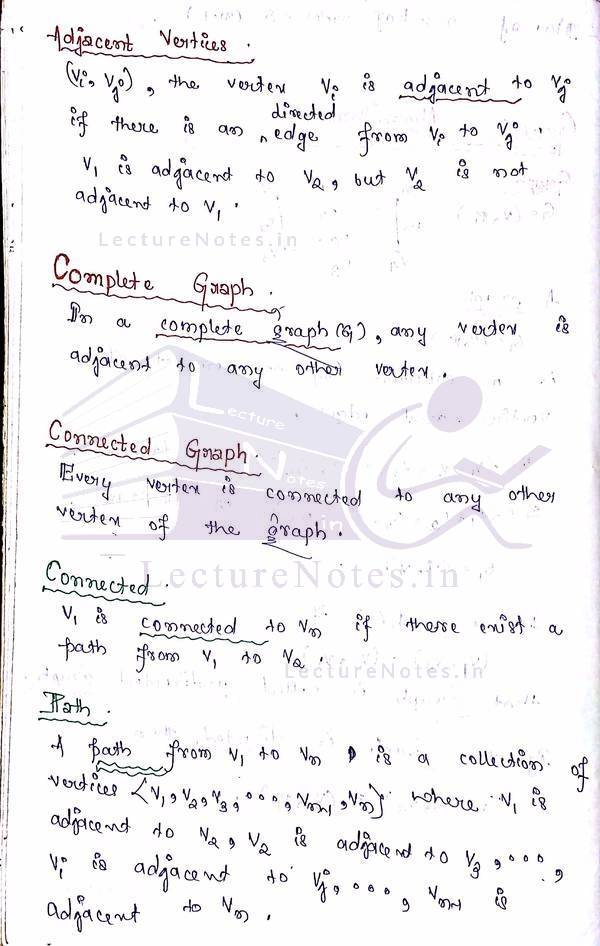 Adjacent Vertices.
(Vi, Vj), the vertex Vi is adjacent to Vj
if there is an directed edge from Vi to Vj.
V1 is adjacent to V2, but V2 is not
adjacent to V1.
LectureNotes.in
Complete Graph.
In a complete graph (G), any vertex is
adjacent to any other vertex.
Lecture
Notes
in
Connected Graph.
Every vertex is connected to any other
vertex of the graph.
LectureNotes.in
Connected
V1 is connected to Vn if there exist a
path from V1 to V2.
LectureNotes.in
Path.
A path from V1 to Vn is a collection of
vertices {V1, V2, V3, ..., Vn-1, Vn} where V1 is
adjacent to V2, V2 is adjacent to V3, ...,
Vi is adjacent to Vj, ..., Vn-1 is
adjacent to Vn.